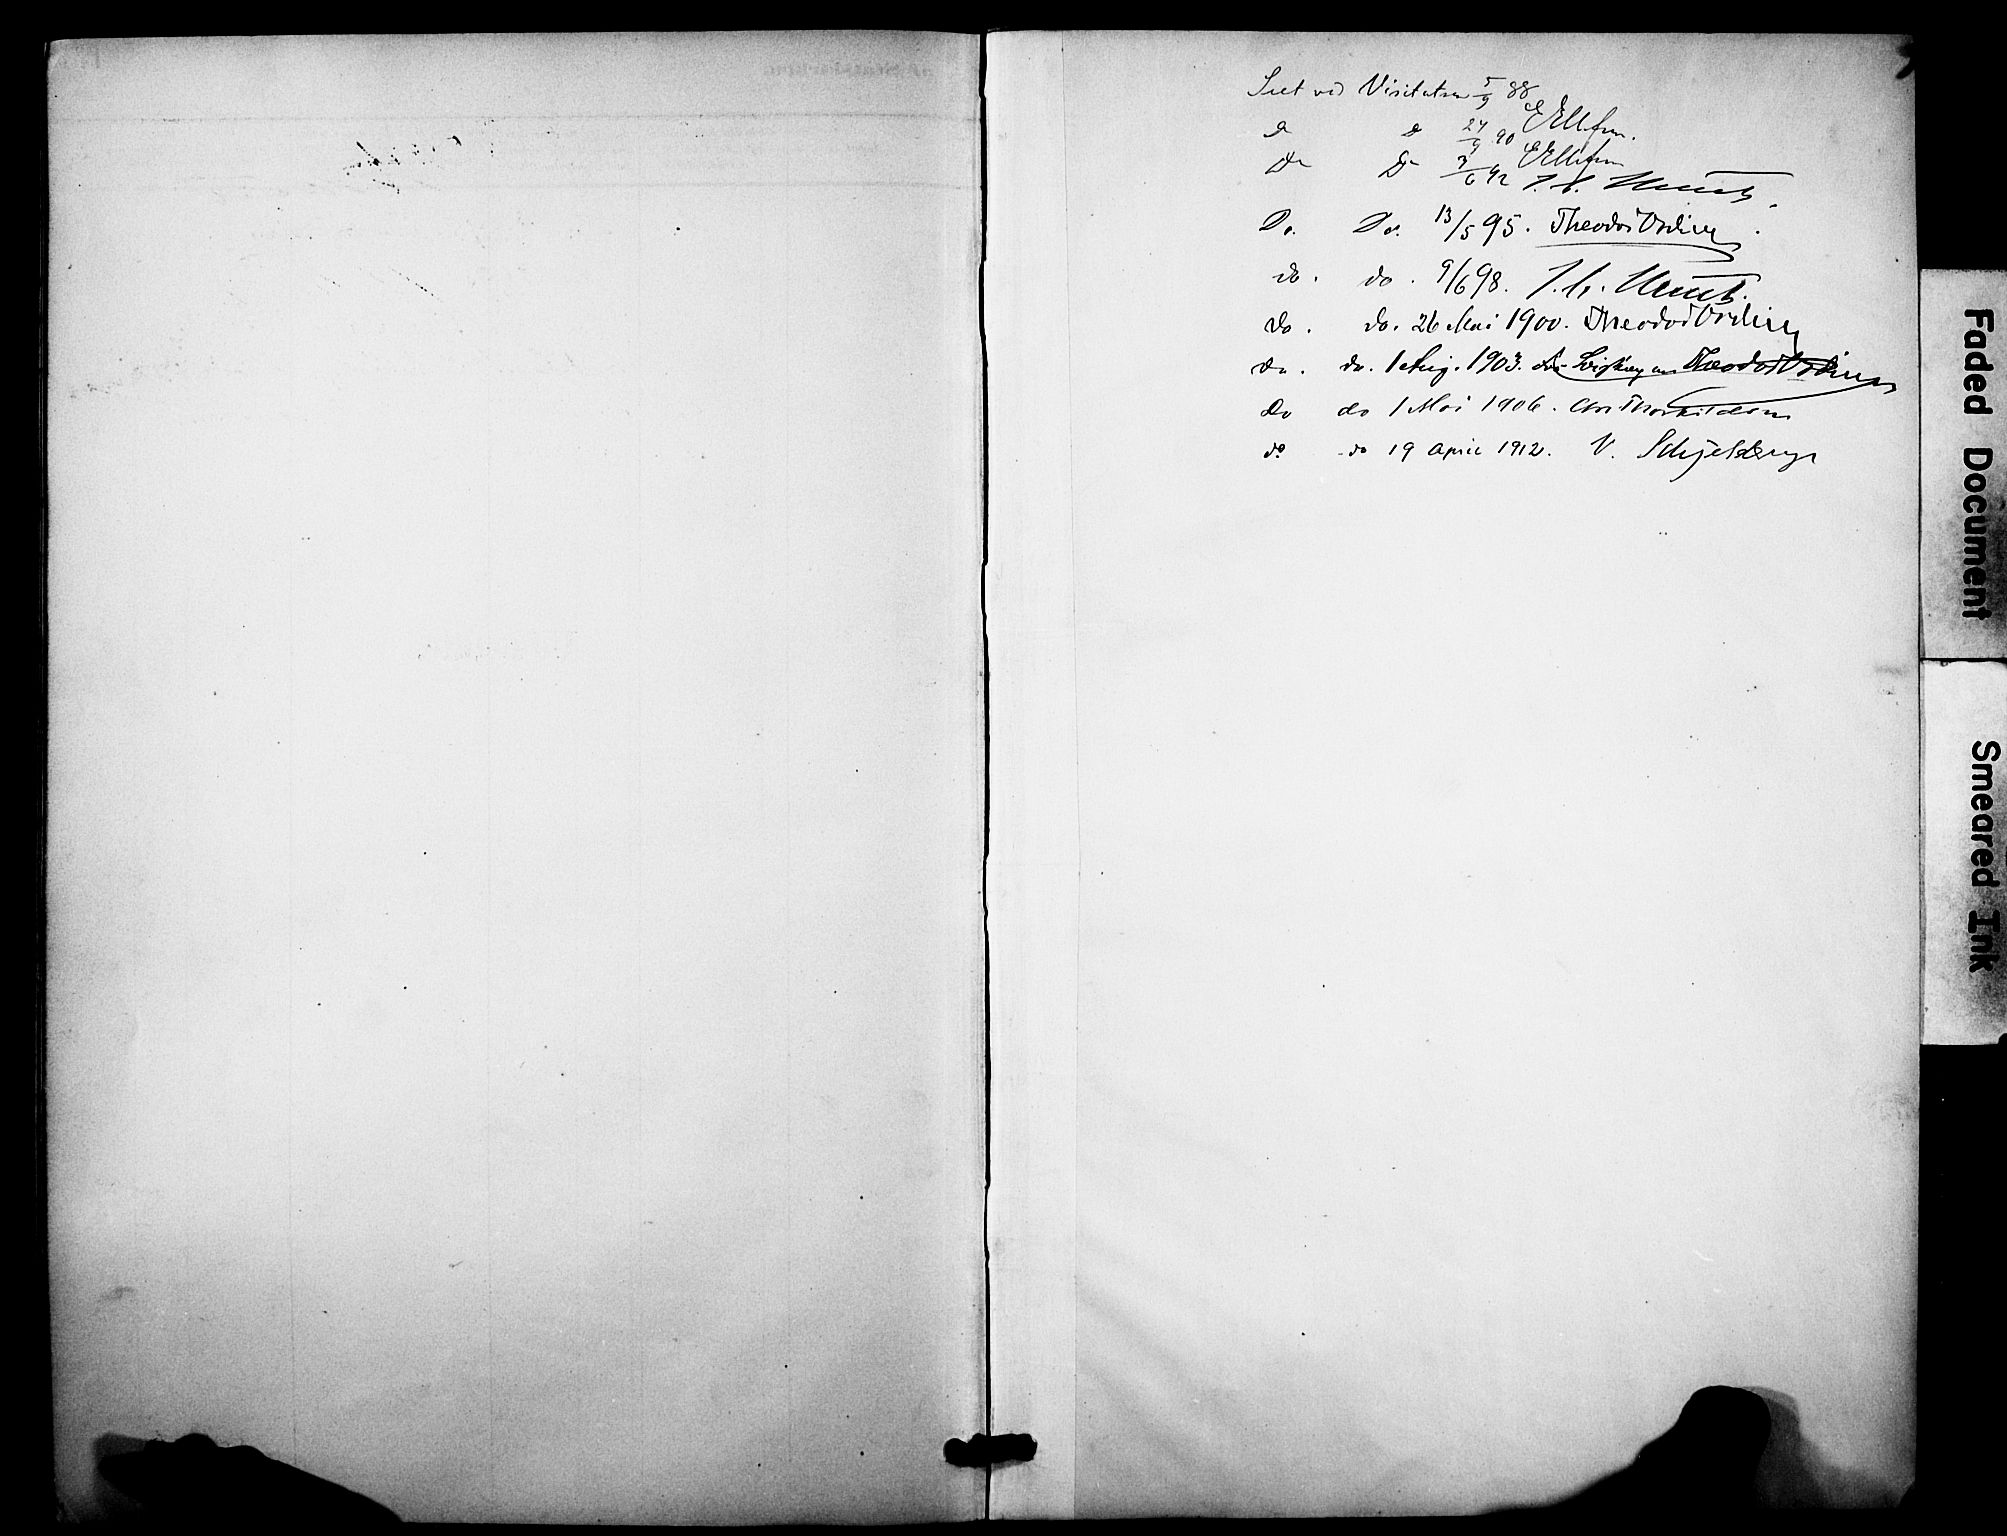 Seet ved Visitatsen 5/9 88
do do 24/9 90 E Ellefsen.
Do Do 3/6 92 E Ellefsen
Do. Do. 13/5 95. Theodor Ording.
do. do. 9/6 98.
Do. do. 26 Mai 1900. Theodor Ording
do. do. 1 Aug. 1903. Theodor Ording
do do 1 Mai 1906. Chr Thorkildsen
do do 19 April 1912. V. Schjelderup
Faded Document
Smeared Ink